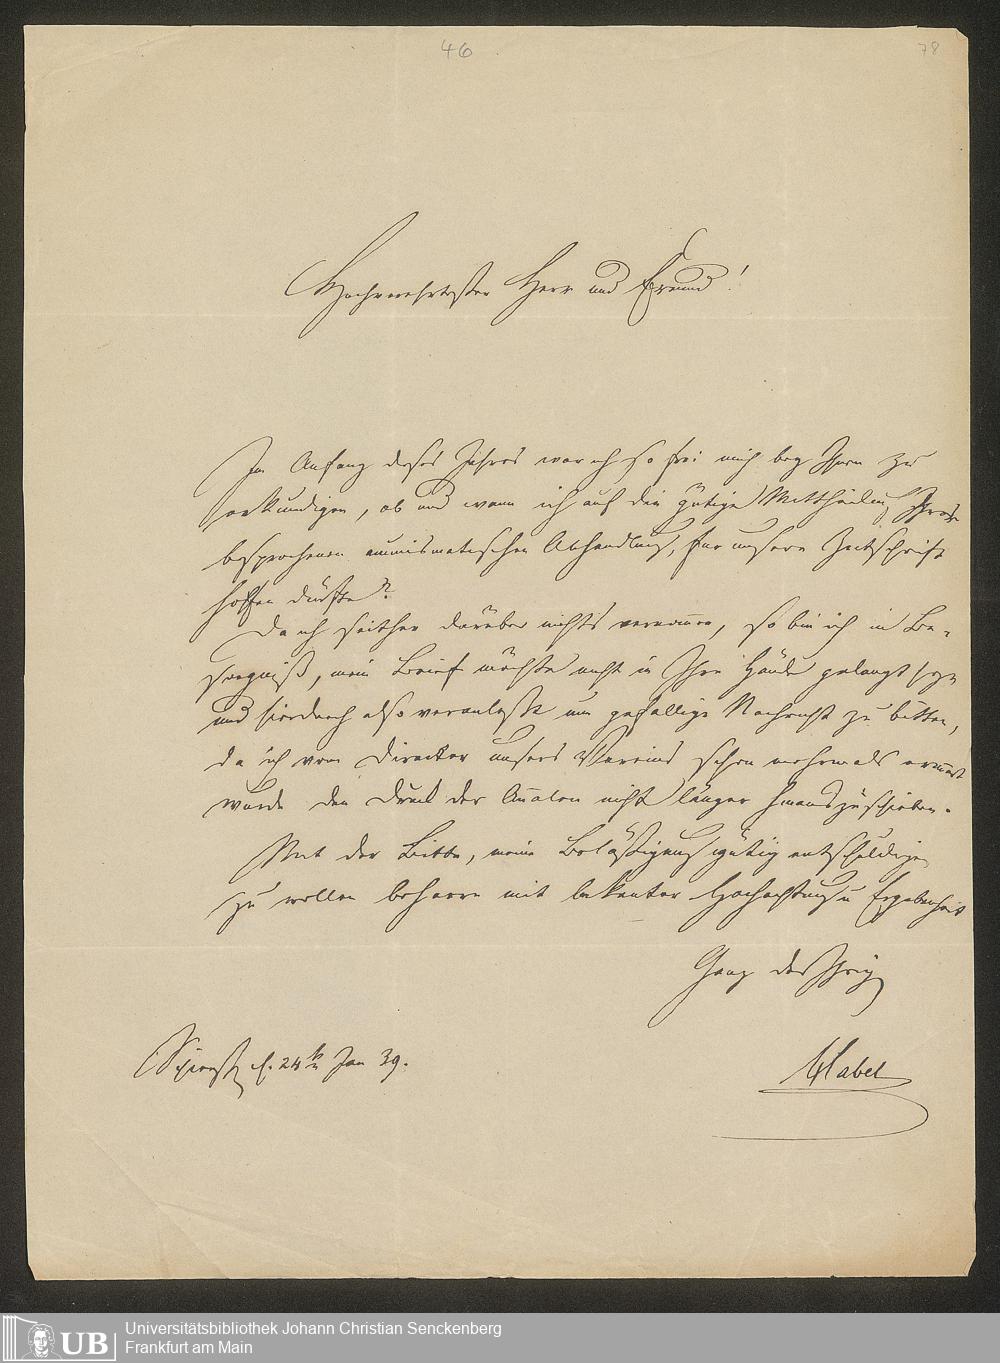 46
78
Hochverehrtester Herr und Freund!
Im Anfang dieses Jahres war ich so frei mich bey Ihnen zu
erkundigen, ob und wann ich auf die gütige Mittheilung Ihrer
besprochenen numismatischen Abhandlung, für unsere Zeitschrift
hoffen dürfte?
Da ich seither darüber nichts vernomen, so bin ich in Be-
sorgniß, mein Brief möchte nicht in Ihre Hände gelangt seyn
und hierdurch also veranlaßt um gefällige Nachricht zu bitten,
da ich vom Director unsers Vereins schon mehrmals ermant
wurde den Druck der Analen nicht länger hinauszuschieben.
Mit der Bitte, meine Belästigung gütig entschuldigen
zu wollen beharre mit bekanter Hochachtung u Ergebenheit
Ganz der Ihrig
Schierst. d. 24 Jan 39.
Habel
UB
Universitätsbibliothek Johann Christian Senckenberg
Frankfurt am Main